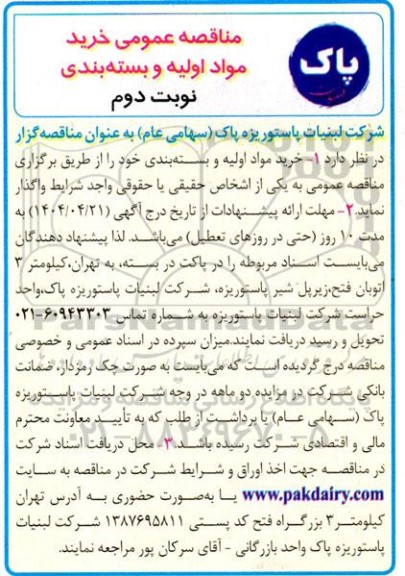 مناقصه عمومی خرید
مواد اولیه و بسته‌بندی
نوبت دوم
پاک
شرکت لبنیات پاستوریزه پاک (سهامی عام) به عنوان مناقصه‌گزار
در نظر دارد ۱- خرید مواد اولیه و بسته‌بندی خود را از طریق برگزاری
مناقصه عمومی به یکی از اشخاص حقیقی یا حقوقی واجد شرایط واگذار
نماید.۲- مهلت ارائه پیشنهادات از تاریخ درج آگهی (۱۴۰۴/۰۴/۲۱) به
مدت ۱۰ روز (حتی در روزهای تعطیل) می‌باشد. لذا پیشنهاد دهندگان
می‌بایست اسناد مربوطه را در پاکت در بسته، به تهران،کیلومتر ۳
اتوبان فتح،زیرپل شیر پاستوریزه، شرکت لبنیات پاستوریزه پاک،واحد
حراست شرکت لبنیات پاستوریزه به شماره تماس ۶۰۹۴۳۳۰۳-۰۲۱
تحویل و رسید دریافت نمایند.میزان سپرده در اسناد عمومی و خصوصی
مناقصه درج گردیده است که می‌بایست به صورت چک رمزدار، ضمانت
بانکی شرکت در مزایده دو ماهه در وجه شرکت لبنیات پاستوریزه
پاک (سهامی عام) یا برداشت از طلب که به تأیید معاونت محترم
مالی و اقتصادی شرکت رسیده باشد.۳- محل دریافت اسناد شرکت
در مناقصه جهت اخذ اوراق و شرایط شرکت در مناقصه به سایت
www.pakdairy.com یا به‌صورت حضوری به آدرس تهران
کیلومتر۳ بزرگراه فتح کد پستی ۱۳۸۷۶۹۵۸۱۱ شرکت لبنیات
پاستوریزه پاک واحد بازرگانی - آقای سرکان پور مراجعه نمایند.
ParsNamadData